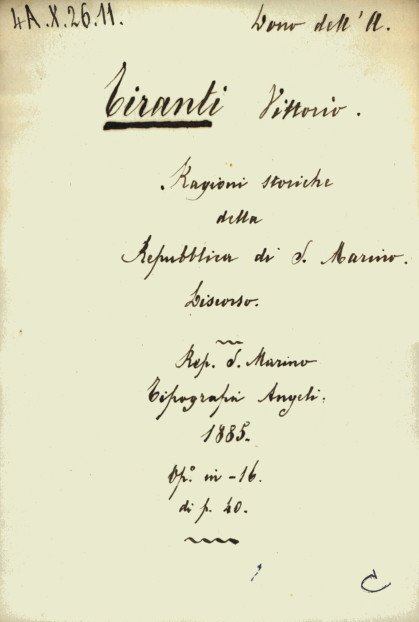 4A.X.26.11.
Dono dell'A.
Tiranti Vittorio.
Ragioni storiche
della
Repubblica di S. Marino.
Discorso.
Rep. S. Marino
Tipografia Angeli.
1885.
Op.º in -16.
di p. 40.
C